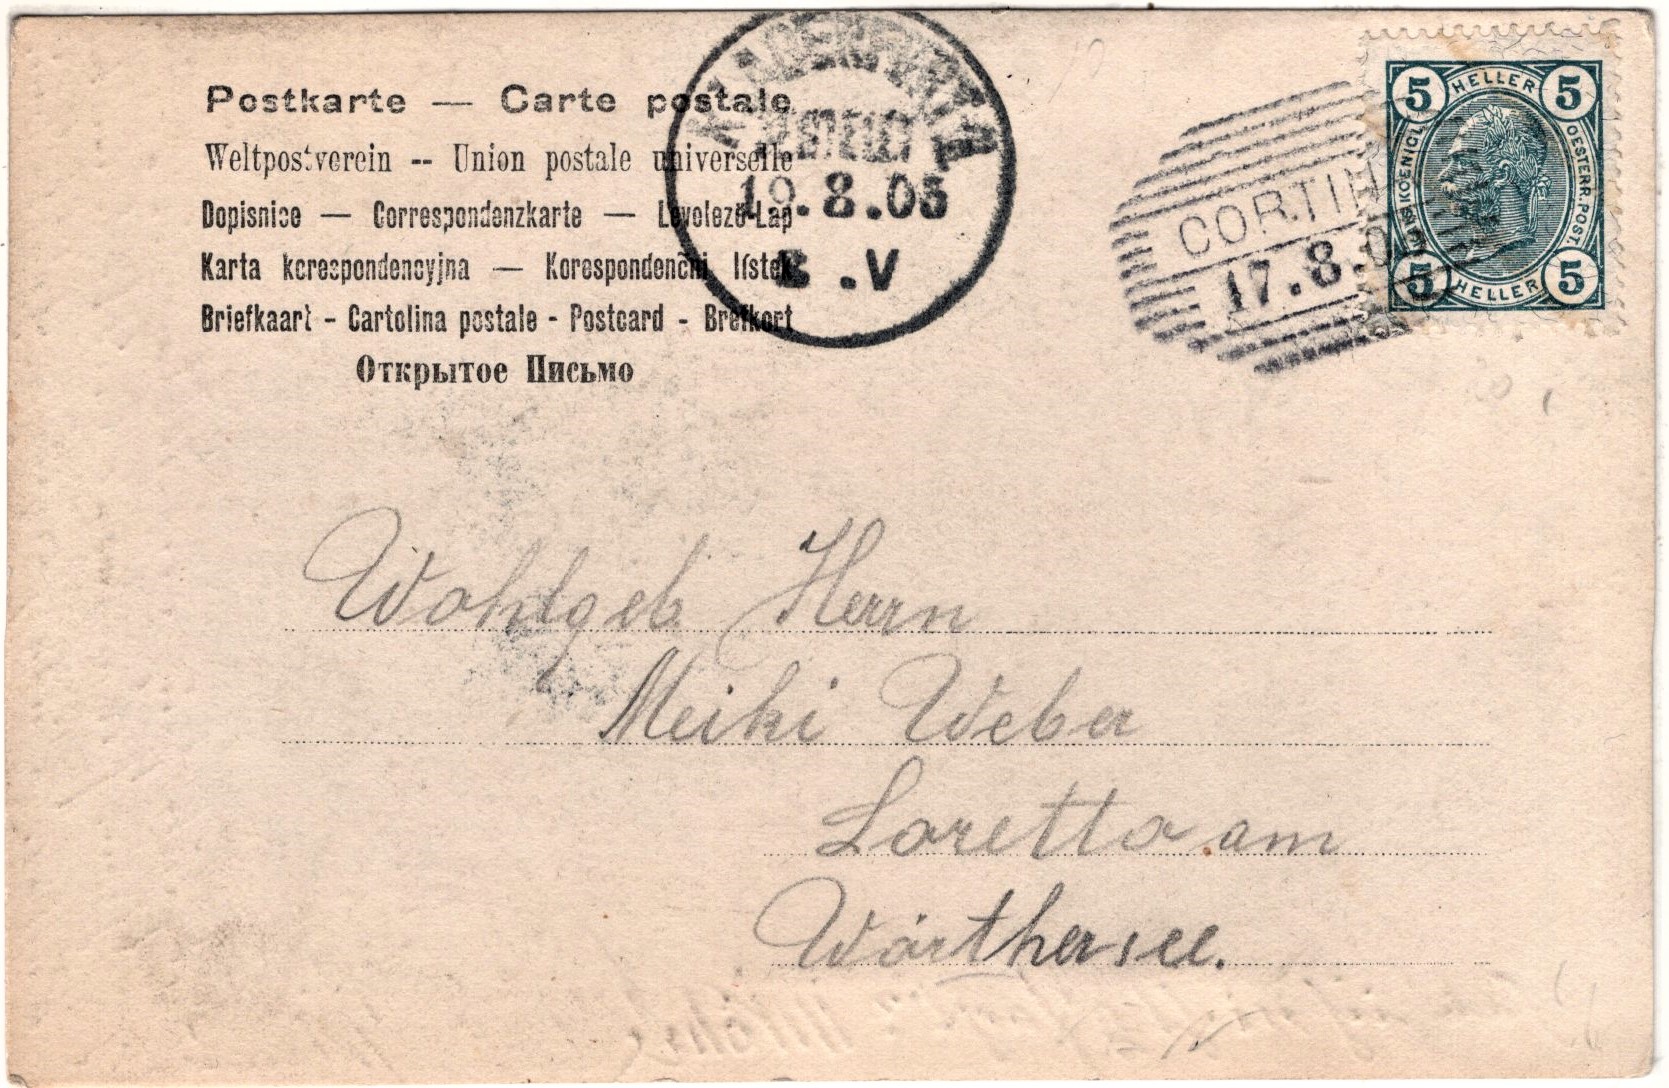 Postkarte — Carte postale
Weltpostverein -- Union postale universelle
Dopisnice — Correspondenzkarte — Levelező-Lap
Karta korespondencyjna — Korespondenčni lístek
Briefkaart - Cartolina postale - Postcard - Brefkort
Открытое Письмо
KLAGENFURT 1
19.8.05
8.V
CORTINA
17.8.05
5 HELLER 5
KAIS. KOENIGL. OESTERR. POST.
5 HELLER 5
Wohlgeb. Herrn
Meiki Weber
Loretto am
Wörthersee.